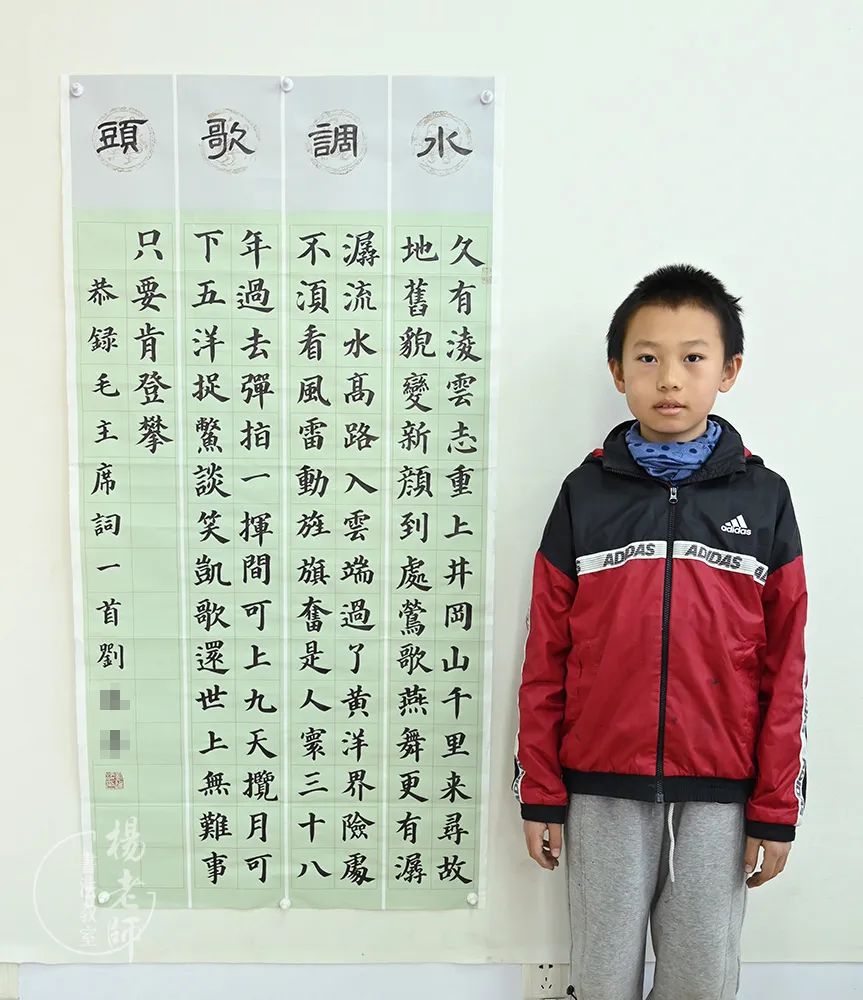 水調歌頭
久有淩雲志重上井岡山千里来尋故
地舊貌變新顔到處鶯歌燕舞更有潺
潺流水髙路入雲端過了黃洋界險處
不須看風雷動旌旗奮是人寰三十八
年過去彈指一揮間可上九天攬月可
下五洋捉鱉談笑凱歌還世上無難事
只要肯登攀
恭録毛主席詞一首劉
adidas
ADIDAS ADIDAS
楊老師
書法教室